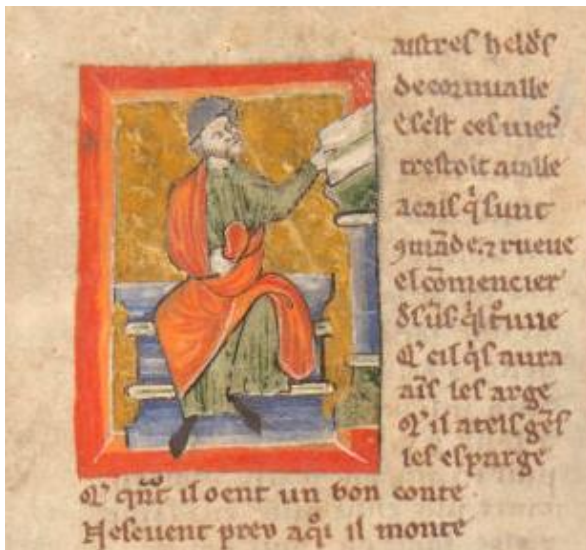 aistres heldrˀs
de cornualle
Escˀst ces uiers
trestoit a talle
acals qˀs unt
ꝯmāde. ⁊ rueue
el cōmencier
Q̃ cil qˀs aura
ains les arge
Q̃ il a tels gēs
les esparge
Q̃ qͣnt il oent un bon conte.
Ne seuent preu a qoͥ il monte